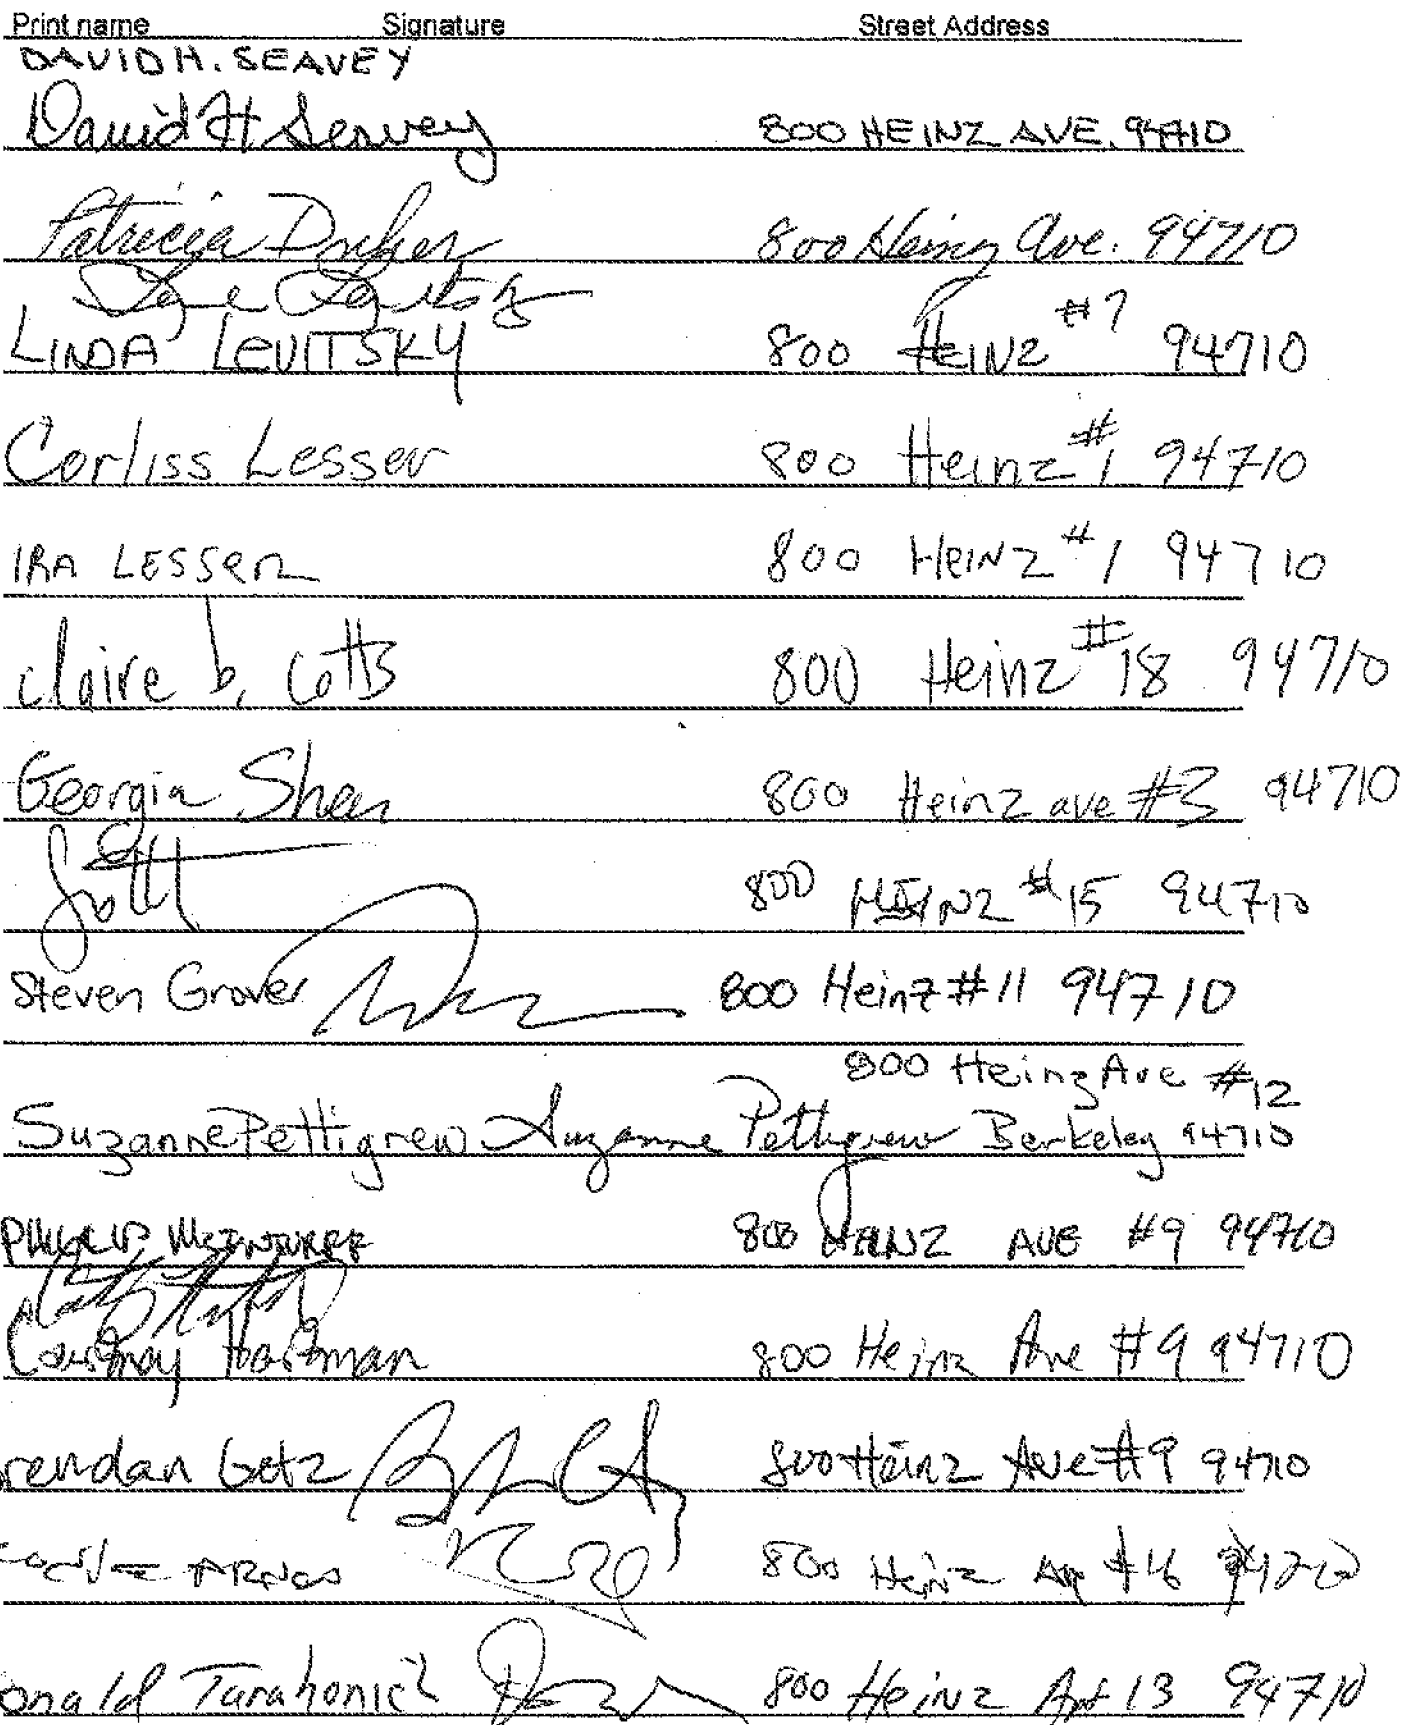 Print name Signature Street Address
DAVID H. SEAVEY
David H Seavey 800 HEINZ AVE. 94710
Patricia 800 Heinz Ave. 94710
LINDA LEVITSKY 800 HEINZ #7 94710
Corliss Lesser 800 Heinz #1 94710
IRA LESSER 800 HEINZ #1 94710
Claire b. Cotts 800 Heinz #18 94710
Georgia Shea 800 Heinz ave #3 94710
800 HEINZ #15 94710
Steven Grover 800 Heinz #11 94710
800 Heinz Ave #12
Suzanne Pettigrew Suzanne Pettigrew Berkeley 94710
PHILLIP McINTURFF 800 HEINZ AVE #9 94710
Courtney Hartman 800 Heinz Ave #9 94710
rendan Getz 800 Heinz Ave #9 94710
800 Heinz
onald Tarahonich 800 Heinz Apt 13 94710